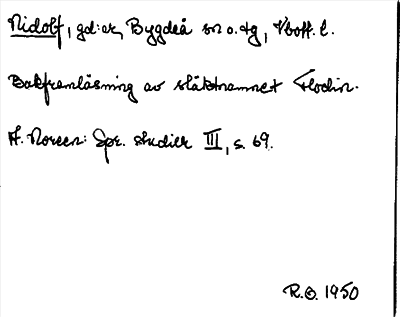 Nidolf, gd:ar, Bygdeå sn o. tg, Vbott. l.
Bakframläsning av släktnamnet Flodin.
A. Noreen: Spr. studier III, s. 69.
R.O. 1950